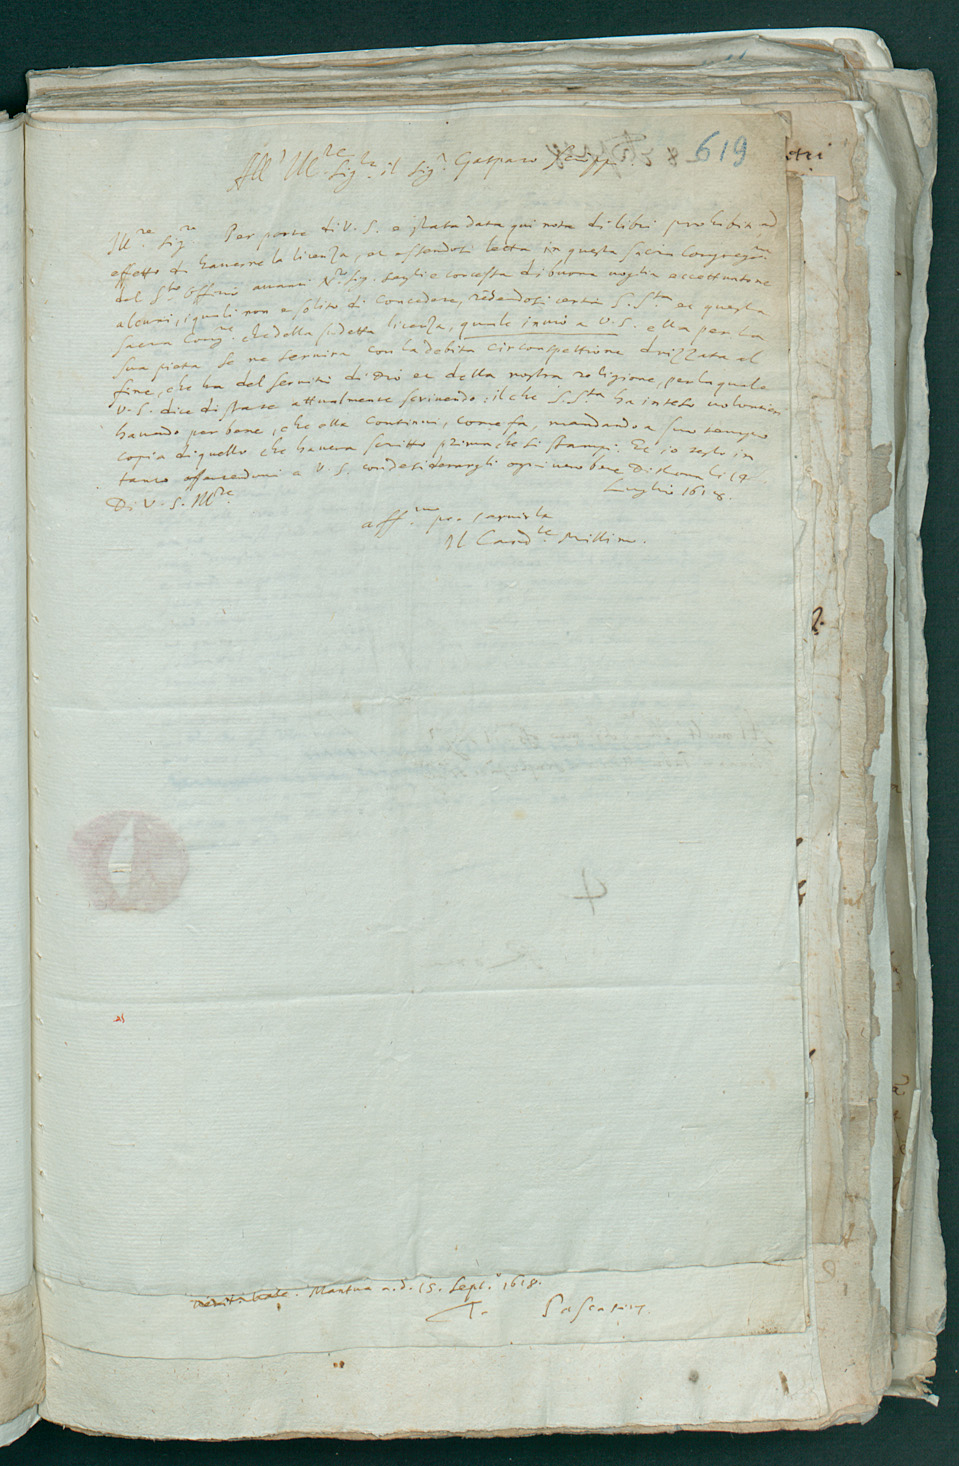 619
All' Ill.re Sig.re il Sig.r Gasparo Scioppio.
Ill.re Sig.re Per parte di V. S. è stata data qui nota di libri prohibiti ad
effetto di haverne la licenza, et essendosi letta in questa sacra Congreg.ne
del S.to Offitio avanti N.ro Sig.re egli è concessa di buona voglia eccettuatone
alcuni, i quali non è solito di concedere, rendendosi certa S. S.tà et questa
sacra Cong.ne che della sudetta licenza, quale invio a V. S. ella per la
sua pietà se ne servirà con la debita circonspettione drizzata al
fine, che ha del servitio di Dio et della nostra religione, per la quale
V. S. dice di stare attualmente scrivendo; il che S. S.tà ha inteso volontieri
havendo per bene, che ella continui, come fa, mandando a suo tempo
copia di quello, che haverà scritto prima che si stampi. Et io resto in
tanto offerendomi a V. S. con desiderargli ogni vero bene Di Roma li 14
Luglio 1618.
Di V. S. Ill.re
aff.mo per servirla
Il Card.le Millino.
Mantua a. d. 15. Sept. 1618.